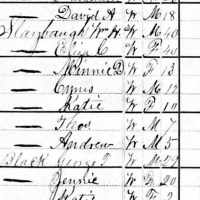 — David A W M 18
Slaybaugh Wm H. W M 40
— Eliza C W F 40
— Minnie D W F 13
— Cyrus W M 12
— Katie W F 10
— Thos W M 7
— Andrew W M 5
Black George T W M 27
— Jennie W F 20